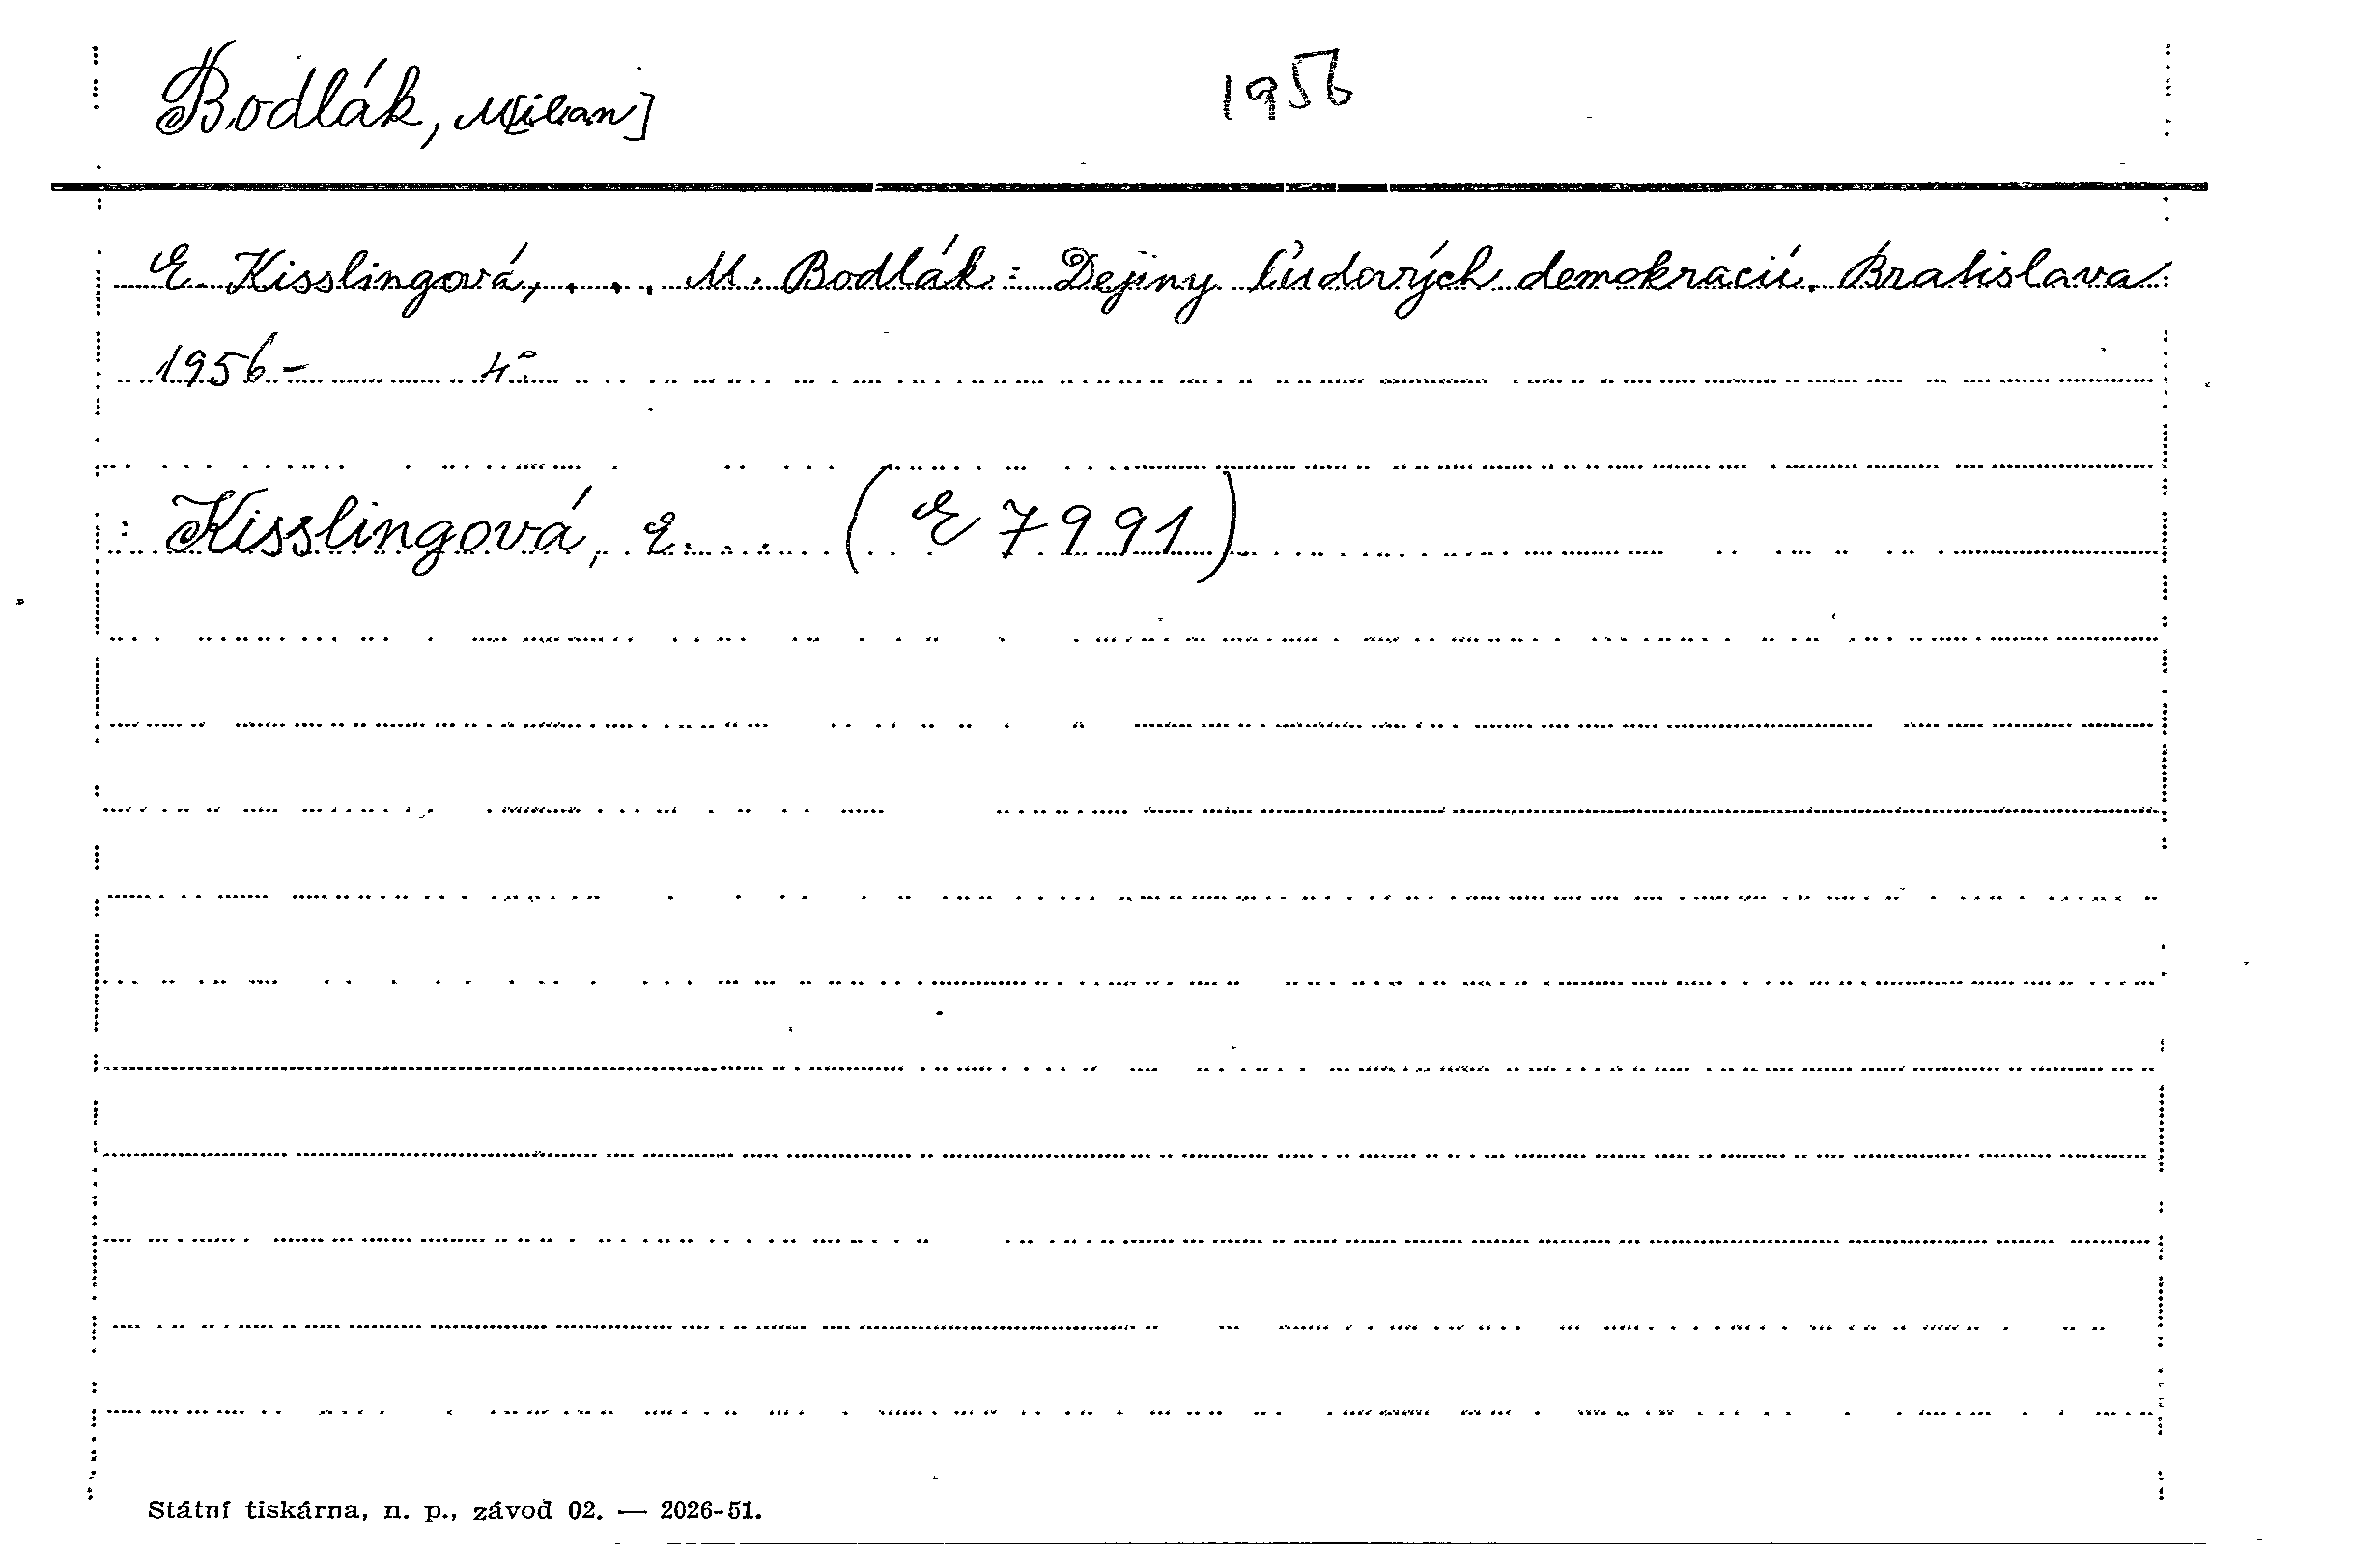 Bodlák, M[ilan] 1956
E. Kisslingová, . . . M. Bodlák: Dejiny ľudových demokracií. Bratislava
1956- 4°
Kisslingová, E. . . (E 7991)
Státní tiskárna, n. p., závod 02. — 2026-51.